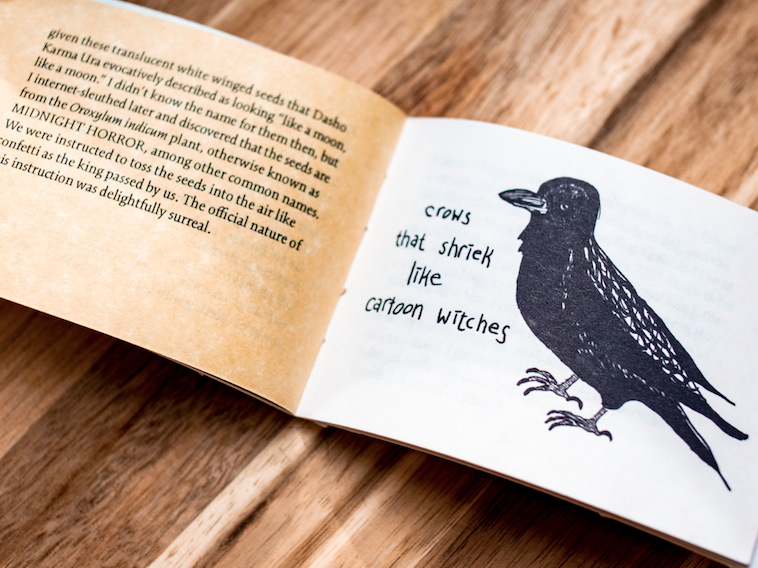 given these translucent white winged seeds that Dasho
Karma Ura evocatively described as looking “like a moon,
like a moon.” I didn’t know the name for them then, but
I internet-sleuthed later and discovered that the seeds are
from the Oroxylum indicum plant, otherwise known as
MIDNIGHT HORROR, among other common names.
We were instructed to toss the seeds into the air like
confetti as the king passed by us. The official nature of
is instruction was delightfully surreal.
crows
that shriek
like
cartoon witches